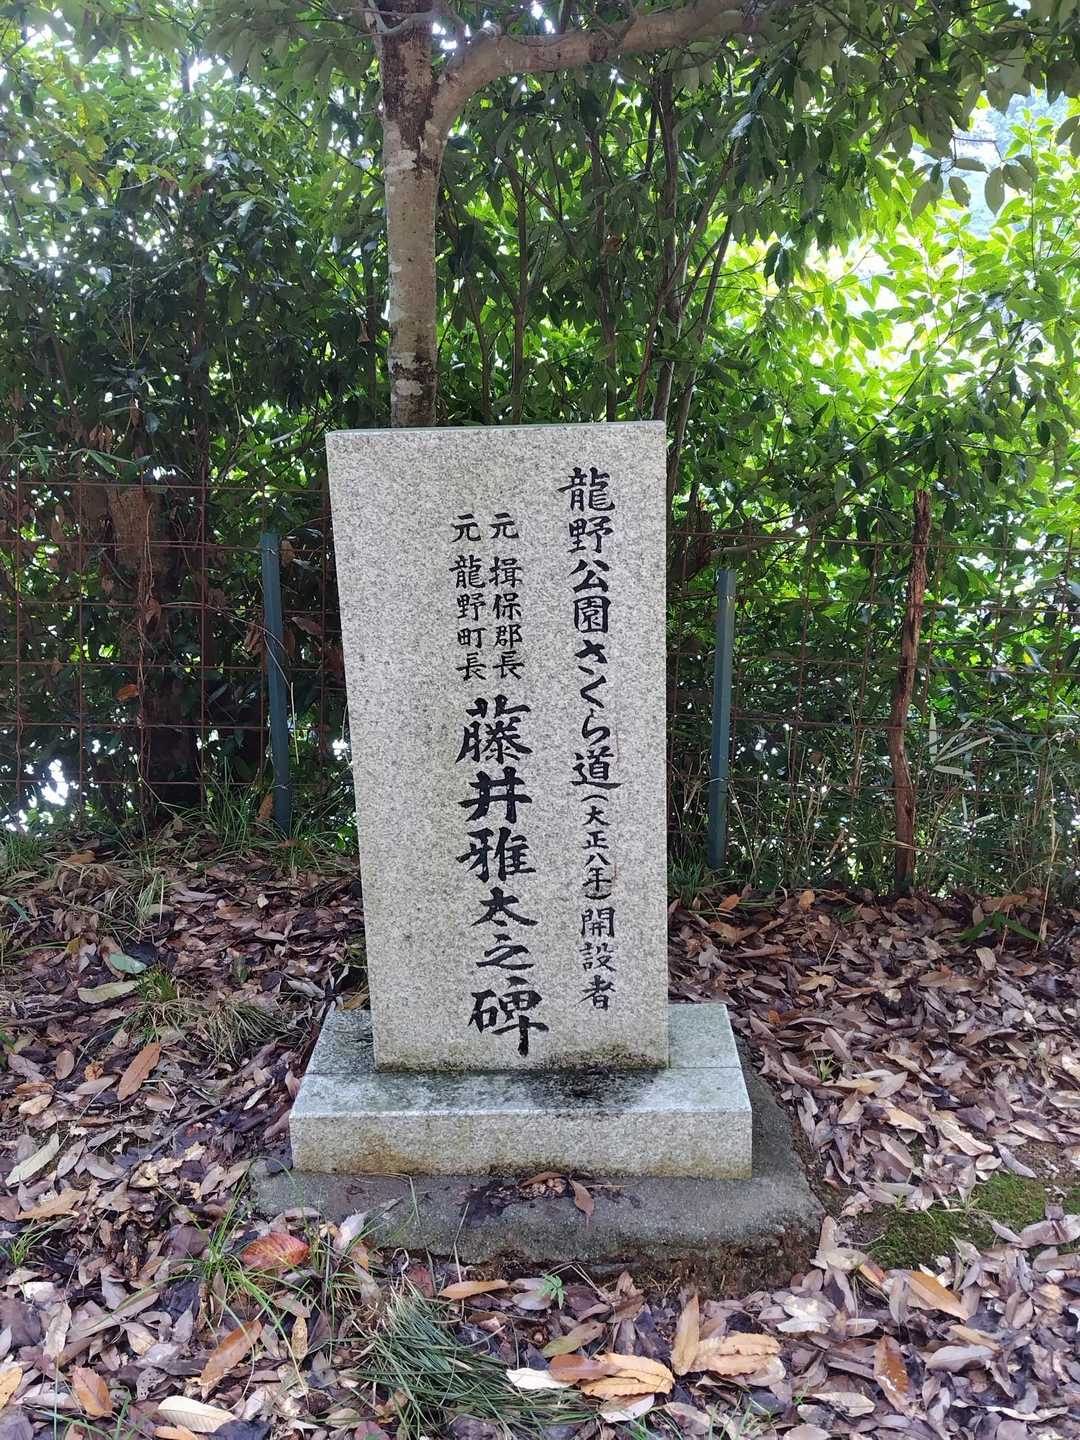 龍野公園さくら道(大正八年)開設者
元 揖保郡長
元 龍野町長
藤井雅太之碑